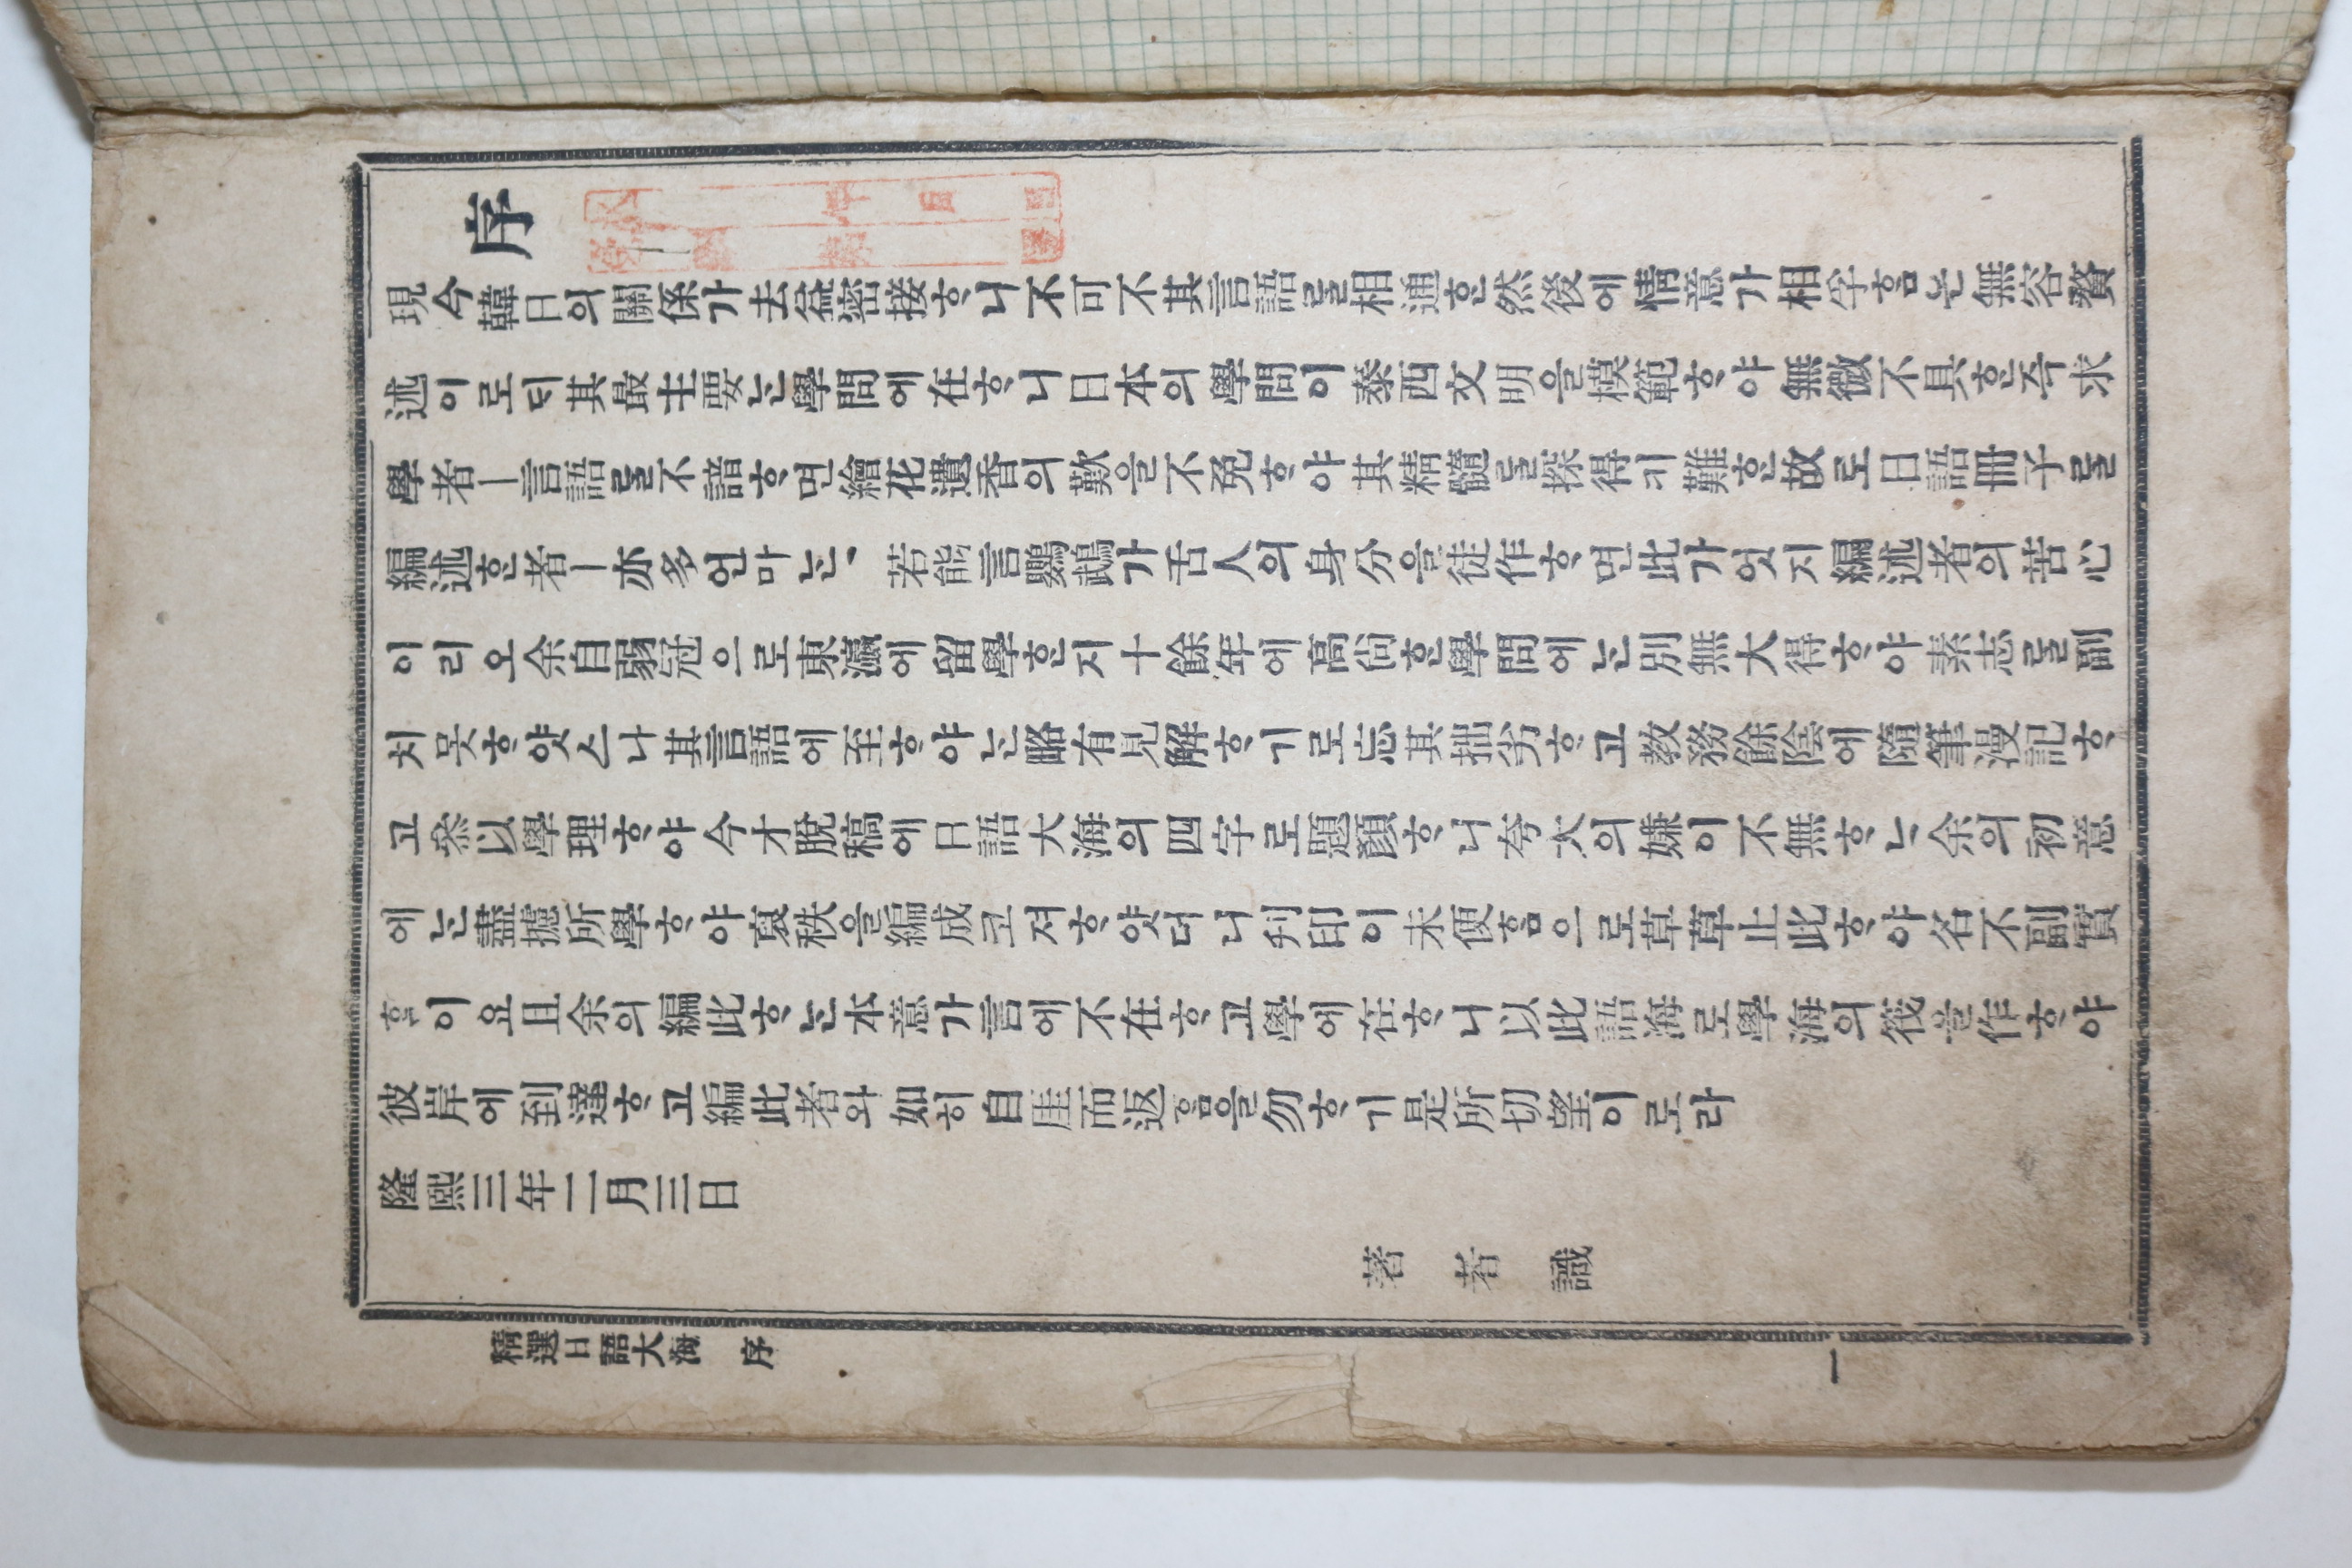 序
現今韓日의關係가去益密接ᄒᆞ니不可不其言語ᄅᆞᆯ相通ᄒᆞᆫ然後에情意가相孚ᄒᆞᆷ은無容贅
述이로ᄃᆡ其最主要ᄂᆞᆫ學問에在ᄒᆞ니日本의學問이泰西文明을模範ᄒᆞ야無微不具ᄒᆞᆫ즉求
學者ㅣ言語ᄅᆞᆯ不諳ᄒᆞ면繪花遺香의歎을不免ᄒᆞ야其精髓ᄅᆞᆯ探得키難ᄒᆞᆫ故로日語冊子ᄅᆞᆯ
編述ᄒᆞᆫ者ㅣ亦多언마ᄂᆞᆫ、若能言鸚鵡가舌人의身分을徒作ᄒᆞ면此가엇지編述者의苦心
이리오余自弱冠으로東瀛에留學ᄒᆞᆫ지十餘年에高尙ᄒᆞᆫ學問에ᄂᆞᆫ別無大得ᄒᆞ야素志ᄅᆞᆯ副
치못ᄒᆞ얏스나其言語에至ᄒᆞ야ᄂᆞᆫ略有見解ᄒᆞ기로忘其拙劣ᄒᆞ고敎務餘陰에隨筆漫記ᄒᆞ
고叅以學理ᄒᆞ야今才脫稿에日語大海의四字로題顏ᄒᆞ니夸大의嫌이不無ᄒᆞᄂᆞ余의初意
에ᄂᆞᆫ盡攄所學ᄒᆞ야裒秩을編成코져ᄒᆞ얏더니刋印이未便ᄒᆞᆷ으로草草止此ᄒᆞ야名不副實
ᄒᆞᆷ이요且余의編此ᄒᆞᄂᆞᆫ本意가言에不在ᄒᆞ고學에在ᄒᆞ니以此語海로學海의筏을作ᄒᆞ야
彼岸에到達ᄒᆞ고編此者와如히自厓而返ᄒᆞᆷ을勿ᄒᆞ기是所切望이로라
隆熙三年二月三日
著者識
精選日語大海 序
一